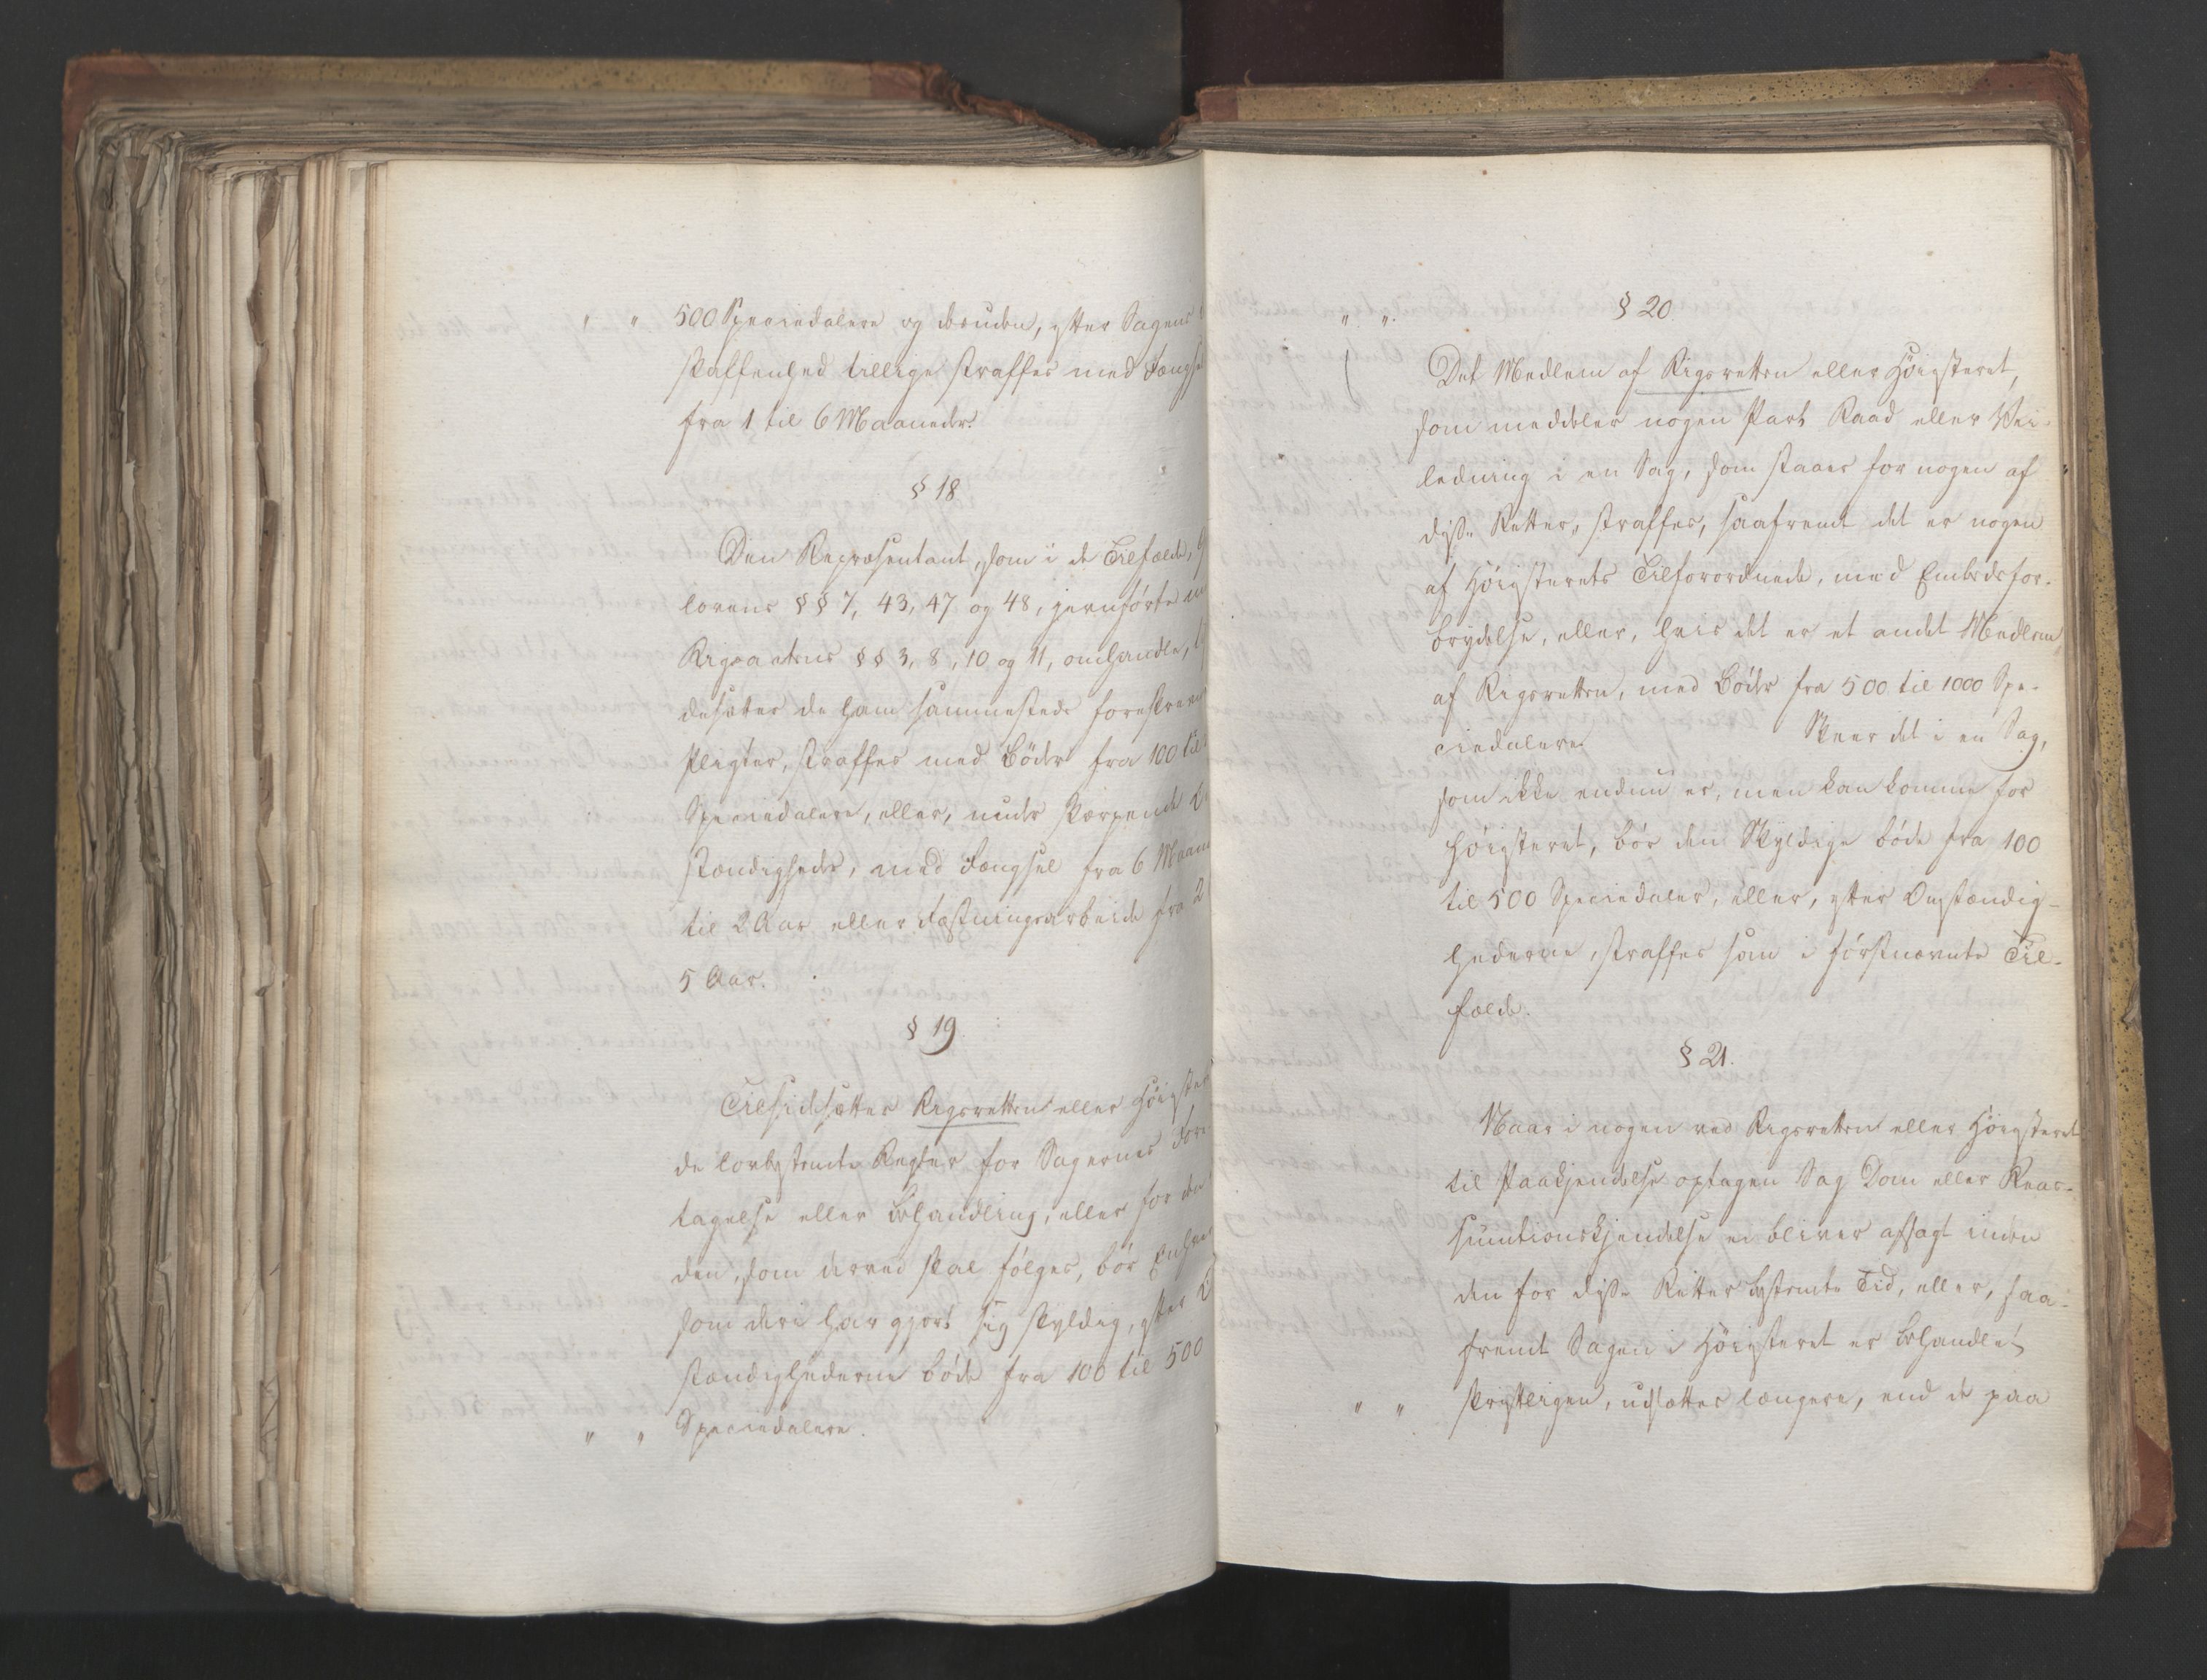 " " 500 Speciedalere og desuden, efter Sagens
skaffenhed tillige straffes med Fængse
fra 1 til 6 Maaneder.
§ 18
Den Repræsentant, som i de Tilfælde,
lovens §§ 7, 43, 47 og 48, jevnførte
Rigsaktens §§ 3, 8, 10 og 11, omhandle,
desætter de ham sammesteds foreskrevn
Pligter, straffes med Bøder fra 100 til
Speciedalere, eller, under skærpende
stændigheder, med Fængsel fra 6 Maane
til 2 Aar eller Fæstningsarbeide fra 2
5 Aar.
§ 19
Tilsidesætter Rigsretten eller Høieste
de lovbestemte Regler for Sagernes Fore
tagelse eller Behandling, eller for den
den, som derved skal følges, bør Enhver
som deri har gjort sig skyldig, efter
stændighederne bøde fra 100 til 500
" " Speciedalere.
§ 20
" "
Det Medlem af Rigsretten eller Høiesteret,
som meddeler nogen Part Raad eller Vei-
ledning i en Sag, som staaer for nogen af
disse Retter, straffes, saafremt det er nogen
af Høiesterets Tilforordnede, med Embedsfor-
brydelse, eller, hvis det er et andet Medlem
af Rigsretten, med Bøder fra 500 til 1000 Spe-
ciedalere. Skeer det i en Sag,
som ikke endnu er, men kan komme for
Høiesteret, bør den Skyldige bøde fra 100
til 500 Speciedaler, eller, efter Omstændig-
hederne, straffes som i førstnævnte Til-
fælde.
§ 21.
Naar i nogen ved Rigsretten eller Høiesteret
til Paakjendelse optagen Sag Dom eller Reas-
sumtionskjendelse ei bliver afsagt inden
den for disse Retter bestemte Tid, eller, saa-
fremt Sagen i Høiesteret er behandlet
" " skriftligen, udsættes længere, end de paa